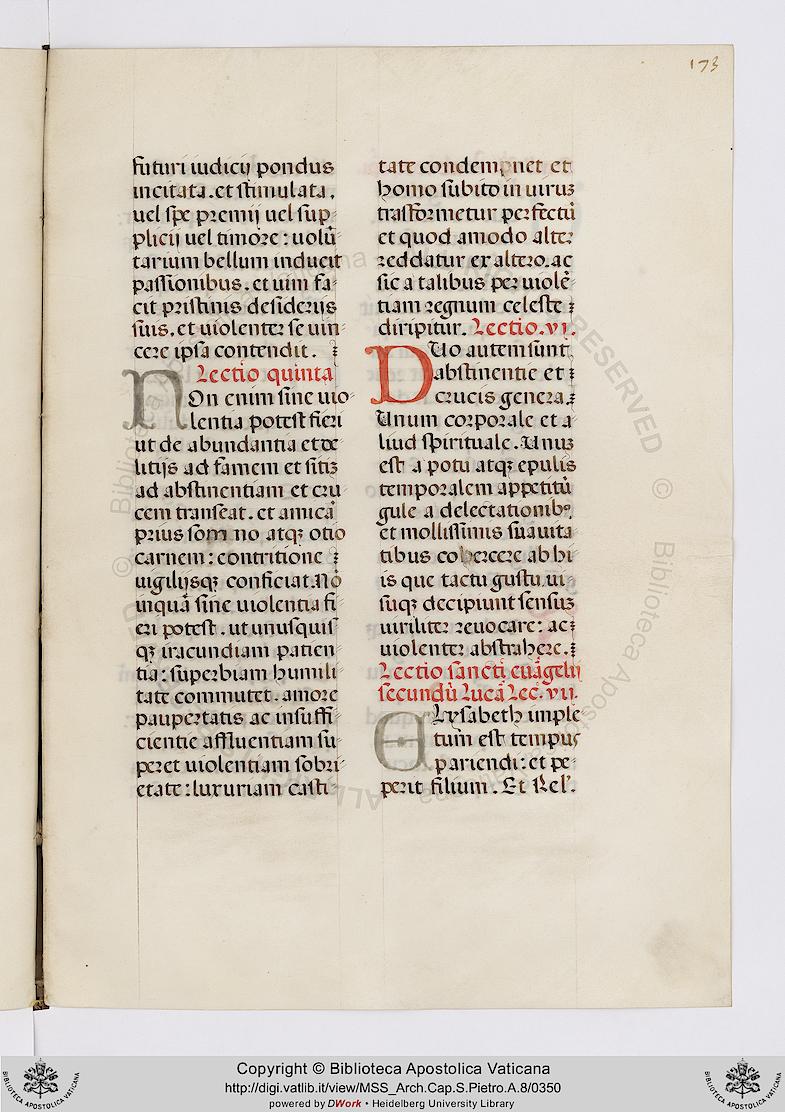 173
futuri iudicij pondus
incitata. et stimulata,
uel spe premij uel sup
plicij uel timore: uolū
tarium bellum induceit
passionibus. et uim fa
cit pristinis desiderijs
suis, et uiolenter se uin
cere ipsa contendit.
Lectio quinta
NOn enim sine uio
lentia potest fieri
ut de abundantia et de
litijs ad famem et sitiꝫ
ad abstinentiam et cru
cem transeat. et amicā
prius somno atqꝫ otio
carnem: contritione
uigilijsqꝫ conficiat. Nō
unquā sine uiolentia fi
eri potest. ut unusquis
qꝫ iracundiam patien
tia: superbiam humili
tate commutet. amore
paupertatis ac insuffi
cientie affluentiam su
peret uiolentiam sobri
etate: luxuriam casti
tate condempnet et
homo subito in uiruꝫ
trasformetur perfectū
et quod amodo alter
reddatur ex altero. ac
sic a talibus per uiolē
tiam regnum celeste
diripitur. Lectio. vi.
DUo autem sunt
abstinentie et
crucis genera.
Unum corporale et a
liud spirituale. Unuꝫ
est a potu atqꝫ epulis
temporalem appetitū
gule a delectationibꝰ
et mollissimis suauita
tibus cohercere ab hi
is que tactu gustu. ui
suqꝫ decipiunt sensuꝫ
uiriliter reuocare: ac
uiolenter abstrahere.
Lectio sancti euāgelij
secundū Lucā Lec. vii.
ELysabeth imple
tum est tempus
pariendi: et pe
perit filium. Et Rel'.
Copyright © Biblioteca Apostolica Vaticana
http://digi.vatlib.it/view/MSS_Arch.Cap.S.Pietro.A.8/0350
powered by DWork • Heidelberg University Library
BIBLIOTECA APOSTOLICA VATICANA
BIBLIOTECA APOSTOLICA VATICANA